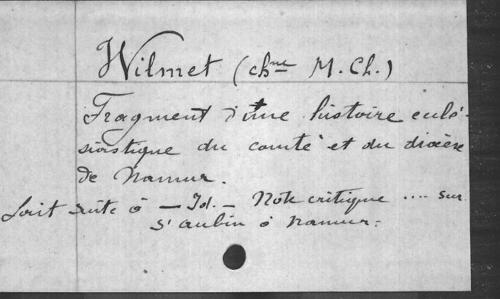 Wilmet (chne M. Ch.)
Fragment d'une histoire ecclé-
siastique du comté et du diocèse
de Namur.
fait suite à — Id. — Note critique .... sur
St aubin à Namur.